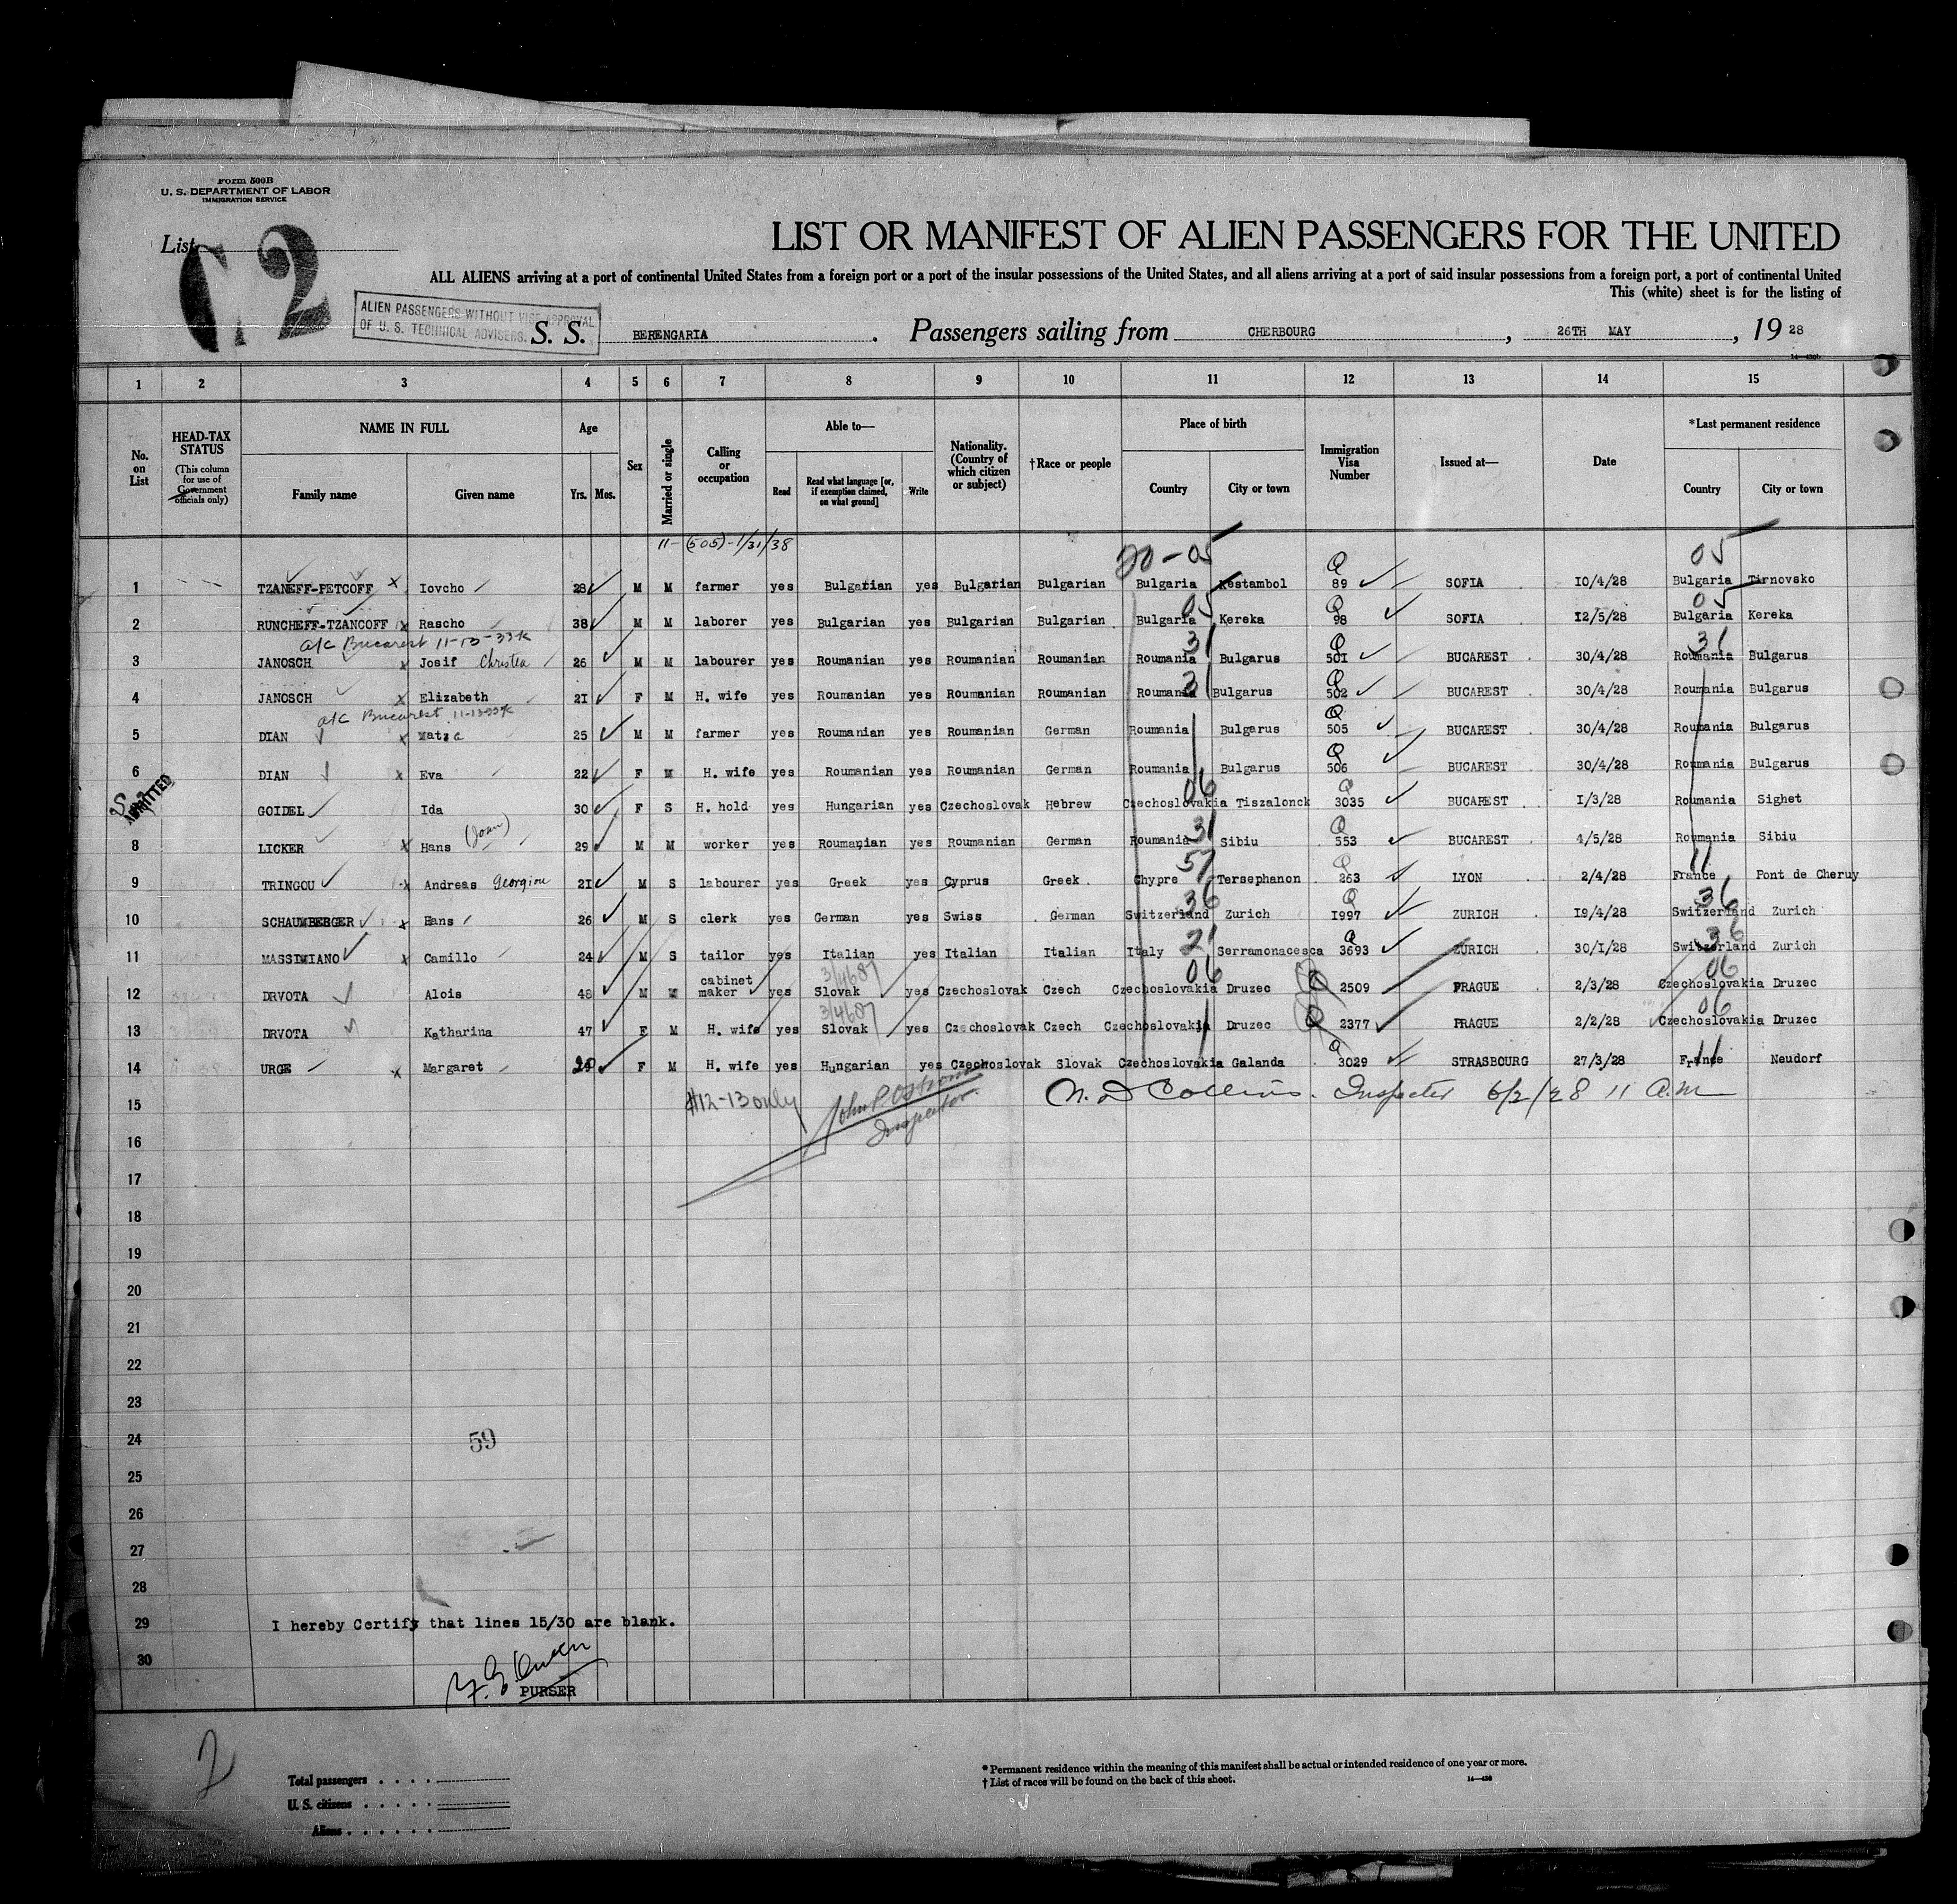 Form 500B
U. S. DEPARTMENT OF LABOR
IMMIGRATION SERVICE
List
2
LIST OR MANIFEST OF ALIEN PASSENGERS FOR THE UNITED
ALL ALIENS arriving at a port of continental United States from a foreign port or a port of the insular possessions of the United States, and all aliens arriving at a port of said insular possessions from a foreign port, a port of continental United
This (white) sheet is for the listing of
ALIEN PASSENGERS WITHOUT VISE APPROVAL
OF U. S. TECHNICAL ADVISERS.
S. S. BERENGARIA . Passengers sailing from CHERBOURG , 26TH MAY , 19 28
1 2 3 4 5 6 7 8 9 10 11 12 13 14 15
No. on List
HEAD-TAX STATUS (This column for use of Government officials only)
NAME IN FULL Family name Given name
Age Yrs. Mos.
Sex
Married or single
Calling or occupation
Able to— Read Read what language [or, if exemption claimed, on what ground] Write
Nationality. (Country of which citizen or subject)
†Race or people
Place of birth Country City or town
Immigration Visa Number
Issued at—
Date
*Last permanent residence Country City or town
11-(505)-1/31/38
20-05 Q 05
1 TZANEFF-PETCOFF x Iovcho 28 M M farmer yes Bulgarian yes Bulgarian Bulgarian Bulgaria Kestambol 89 SOFIA 10/4/28 Bulgaria Tirnovsko
05 Q 05
2 RUNCHEFF-TZANCOFF x Rascho 38 M M laborer yes Bulgarian yes Bulgarian Bulgarian Bulgaria Kereka 98 SOFIA 12/5/28 Bulgaria Kereka
a/c Bucarest 11-13-33k 31 Q 31
3 JANOSCH x Josif Christea 26 M M labourer yes Roumanian yes Roumanian Roumanian Roumania Bulgarus 501 BUCAREST 30/4/28 Roumania Bulgarus
31 Q
4 JANOSCH x Elizabeth 21 F M H. wife yes Roumanian yes Roumanian Roumanian Roumania Bulgarus 502 BUCAREST 30/4/28 Roumania Bulgarus
a/c Bucarest 11-13-33k Q
5 DIAN x 25 M M farmer yes Roumanian yes Roumanian German Roumania Bulgarus 505 BUCAREST 30/4/28 Roumania Bulgarus
Q
6 DIAN x Eva 22 F M H. wife yes Roumanian yes Roumanian German Roumania Bulgarus 506 BUCAREST 30/4/28 Roumania Bulgarus
ADMITTED 06 Q
GOIDEL Ida 30 F S H. hold yes Hungarian yes Czechoslovak Hebrew Czechoslovakia Tiszalonck 3035 BUCAREST 1/3/28 Roumania Sighet
(Joan) 31 Q
8 LICKER x Hans 29 M M worker yes Roumanian yes Roumanian German Roumania Sibiu 553 BUCAREST 4/5/28 Roumania Sibiu
57 Q 11
9 TRINGOU x Andreas Georgiou 21 M S labourer yes Greek yes Cyprus Greek Chypre Tersephanon 263 LYON 2/4/28 France Pont de Cheruy
36 Q 36
10 SCHAUMBERGER x Hans 26 M S clerk yes German yes Swiss German Switzerland Zurich 1997 ZURICH 19/4/28 Switzerland Zurich
21 Q 36
11 MASSIMIANO x Camillo 24 M S tailor yes Italian yes Italian Italian Italy Serramonacesca 3693 ZURICH 30/1/28 Switzerland Zurich
06 Q 06
12 DRVOTA Alois 48 M M cabinet maker yes Slovak yes Czechoslovak Czech Czechoslovakia Druzec 2509 PRAGUE 2/3/28 Czechoslovakia Druzec
Q 06
13 DRVOTA Katharina 47 F M H. wife yes Slovak yes Czechoslovak Czech Czechoslovakia Druzec 2377 PRAGUE 2/2/28 Czechoslovakia Druzec
Q 11
14 URGE x Margaret F M H. wife yes Hungarian yes Czechoslovak Slovak Czechoslovakia Galanda 3029 STRASBOURG 27/3/28 France Neudorf
15 #12-13 only Inspector. N. D Collins. Inspector 6/2/28 11 A.M
16
17
18
19
20
21
22
23
24 59
25
26
27
28
29 I hereby Certify that lines 15/30 are blank.
30
PURSER
2
Total passengers . . . .
U. S. citizens . . . . .
Aliens . . . . . .
* Permanent residence within the meaning of this manifest shall be actual or intended residence of one year or more.
† List of races will be found on the back of this sheet.